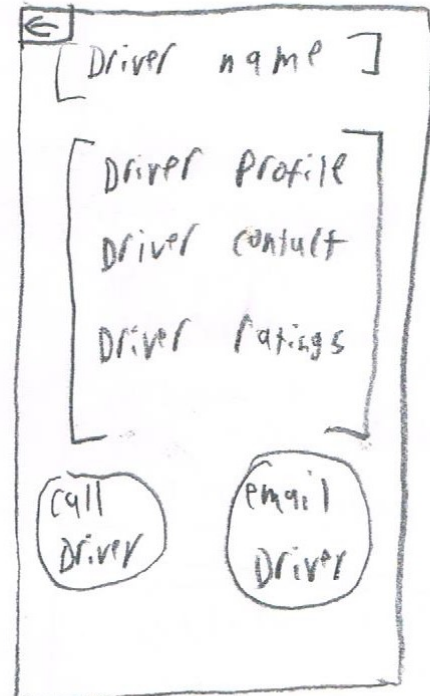 [Driver name]
Driver Profile
Driver contact
Driver ratings
call
Driver
email
Driver